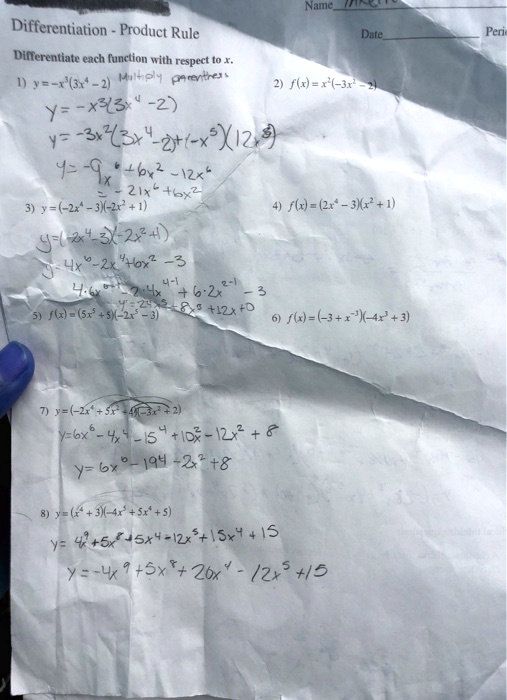 Name
Differentiation - Product Rule
Date
Differentiate each function with respect to x.
1) y = -x³(3x⁴ - 2) Multiply
y = -x³(3x⁴ - 2)
y = -3x²(3x⁴ - 2) + (-x³)(12x³)
y = -9x⁶ + 6x² - 12x⁶
= -21x⁶ + 6x²
2) f(x) = x²(-3x² - 2)
3) y = (-2x⁴ - 3)(-2x² + 1)
y = (-2x⁴ - 3)(-2x² + 1)
y = 4x⁶ - 2x⁴ + 6x² - 3
4·6x⁶⁻¹ - 2·4x⁴⁻¹ + 6·2x²⁻¹ - 3
y' = 24x⁵ - 8x³ + 12x + 0
4) f(x) = (2x⁴ - 3)(x² + 1)
5) f(x) = (5x⁵ + 5)(-2x⁵ - 3)
6) f(x) = (-3 + x⁻³)(-4x³ + 3)
7) y = (-2x⁴ + 5x² + 4)(-3x² + 2)
y = 6x⁶ - 4x⁴ - 15⁴ + 10x² - 12x² + 8
y = 6x⁶ - 194 - 2x² + 8
8) y = (x⁴ + 3)(-4x⁵ + 5x⁴ + 5)
y = 4x⁹ + 5x⁸ + 5x⁴ - 12x⁵ + 15x⁴ + 15
y = -4x⁹ + 5x⁸ + 20x⁴ - 12x⁵ + 15